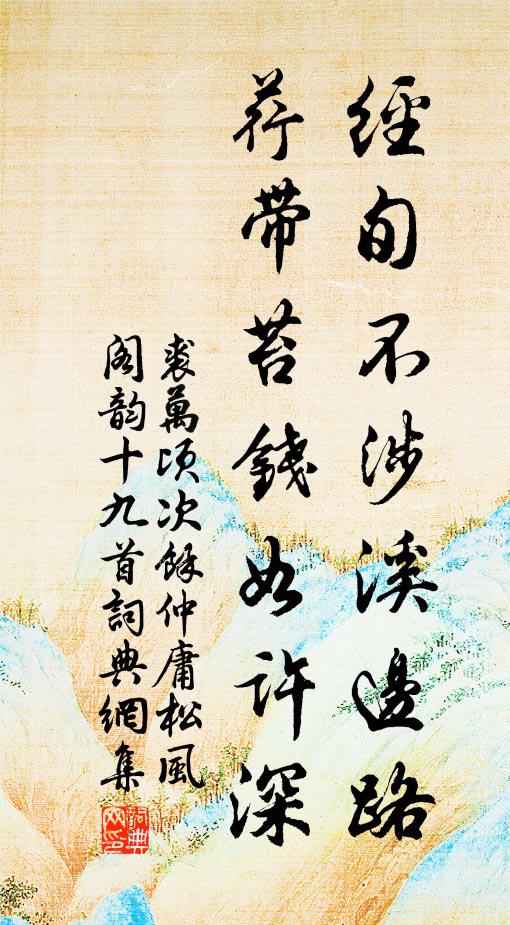 經旬不涉溪邊路
荇帶苔錢如許深
裘萬頃次餘仲庸松風
閣韵十九首詞典網集
詞典
网印